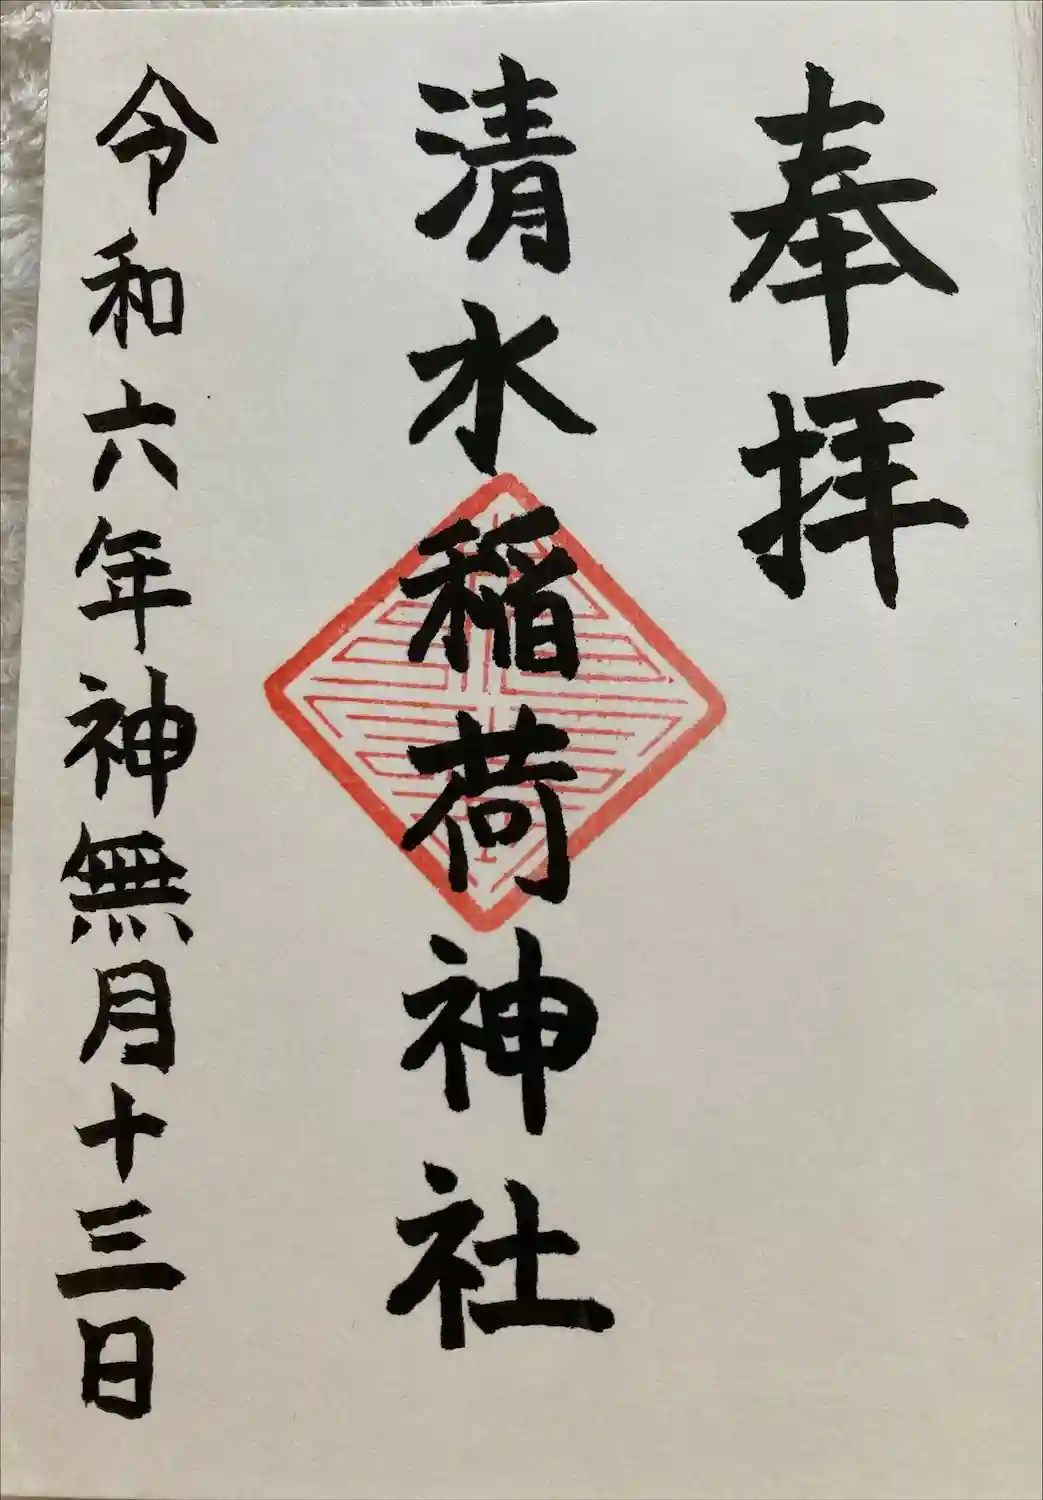 奉拝
清水稲荷神社
令和六年神無月十三日